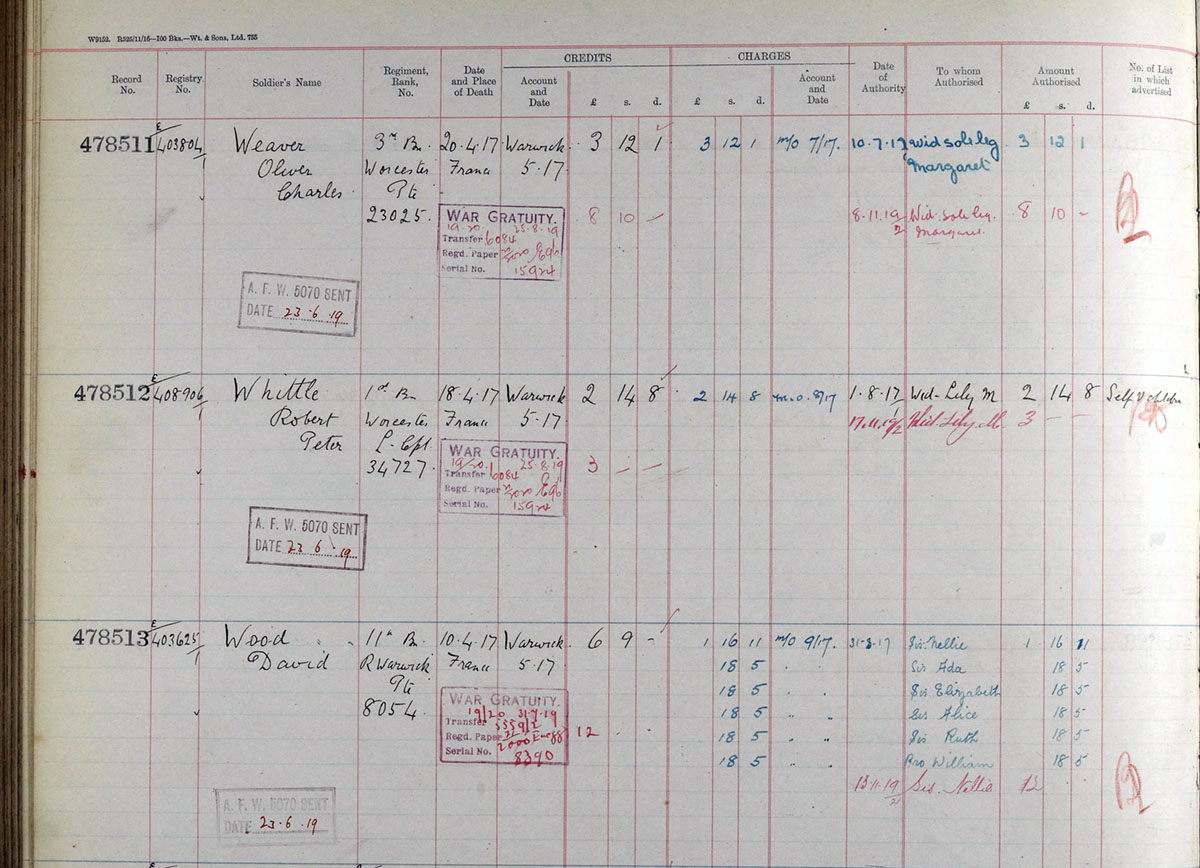 W9152. R525/11/16—100 Bks.—Wt. & Sons, Ltd. 755
CREDITS CHARGES
Record No. Registry No. Soldier's Name Regiment, Rank, No. Date and Place of Death Account and Date £ s. d. £ s. d. Account and Date Date of Authority To whom Authorised Amount Authorised £ s. d. No. of List in which advertised
478511 E/403804/1 Weaver 3rd Bn. 20.4.17 Warwick 3 12 1 3 12 1 m/o 7/17. 10.7.17 Wid sole leg 3 12 1
Oliver Worcester France 5.17 Margaret
Charles Pte
23025. WAR GRATUITY. 8 10 - 8.11.19 Wid. sole leg. 8 10 -
19-20 25.8.19 Margaret
Transfer 6084
Regd. Paper
Serial No. 15924
A. F. W. 5070 SENT
DATE 23-6-19
478512 E/408906/1 Whittle 1st Bn 18.4.17 Warwick 2 14 8 2 14 8 m.o. 8/17 1.8.17 Wid-Lily M 2 14 8 Self & children
Robert Worcester France 5.17 17.11.19 Wid. Lily M. 3 - -
Peter L. Cpl
34727. WAR GRATUITY. 3 - -
19/20. 25.8.19
Transfer 6084
Regd. Paper
Serial No. 15924
A. F. W. 5070 SENT
DATE 23 6 19
478513 E/403625/1 Wood 11th Bn. 10.4.17 Warwick 6 9 - 1 16 11 m/o 9/17. 31-8-17 Sis: Nellie 1 16 11
David R Warwick France 5.17 18 5 Sis Ada 18 5
Pte 18 5 " " Sis Elizabeth 18 5
8054. WAR GRATUITY. 18 5 " " Sis Alice 18 5
19/20 31.7.19
Transfer 5559/2 12 . . 18 5 " " Sis Ruth 18 5
Regd. Paper 18 5 " " Bro William 18 5
Serial No. 8390 13.11.19 Sis. Nellie 12
A. F. W. 5070 SENT
DATE 23-6-19